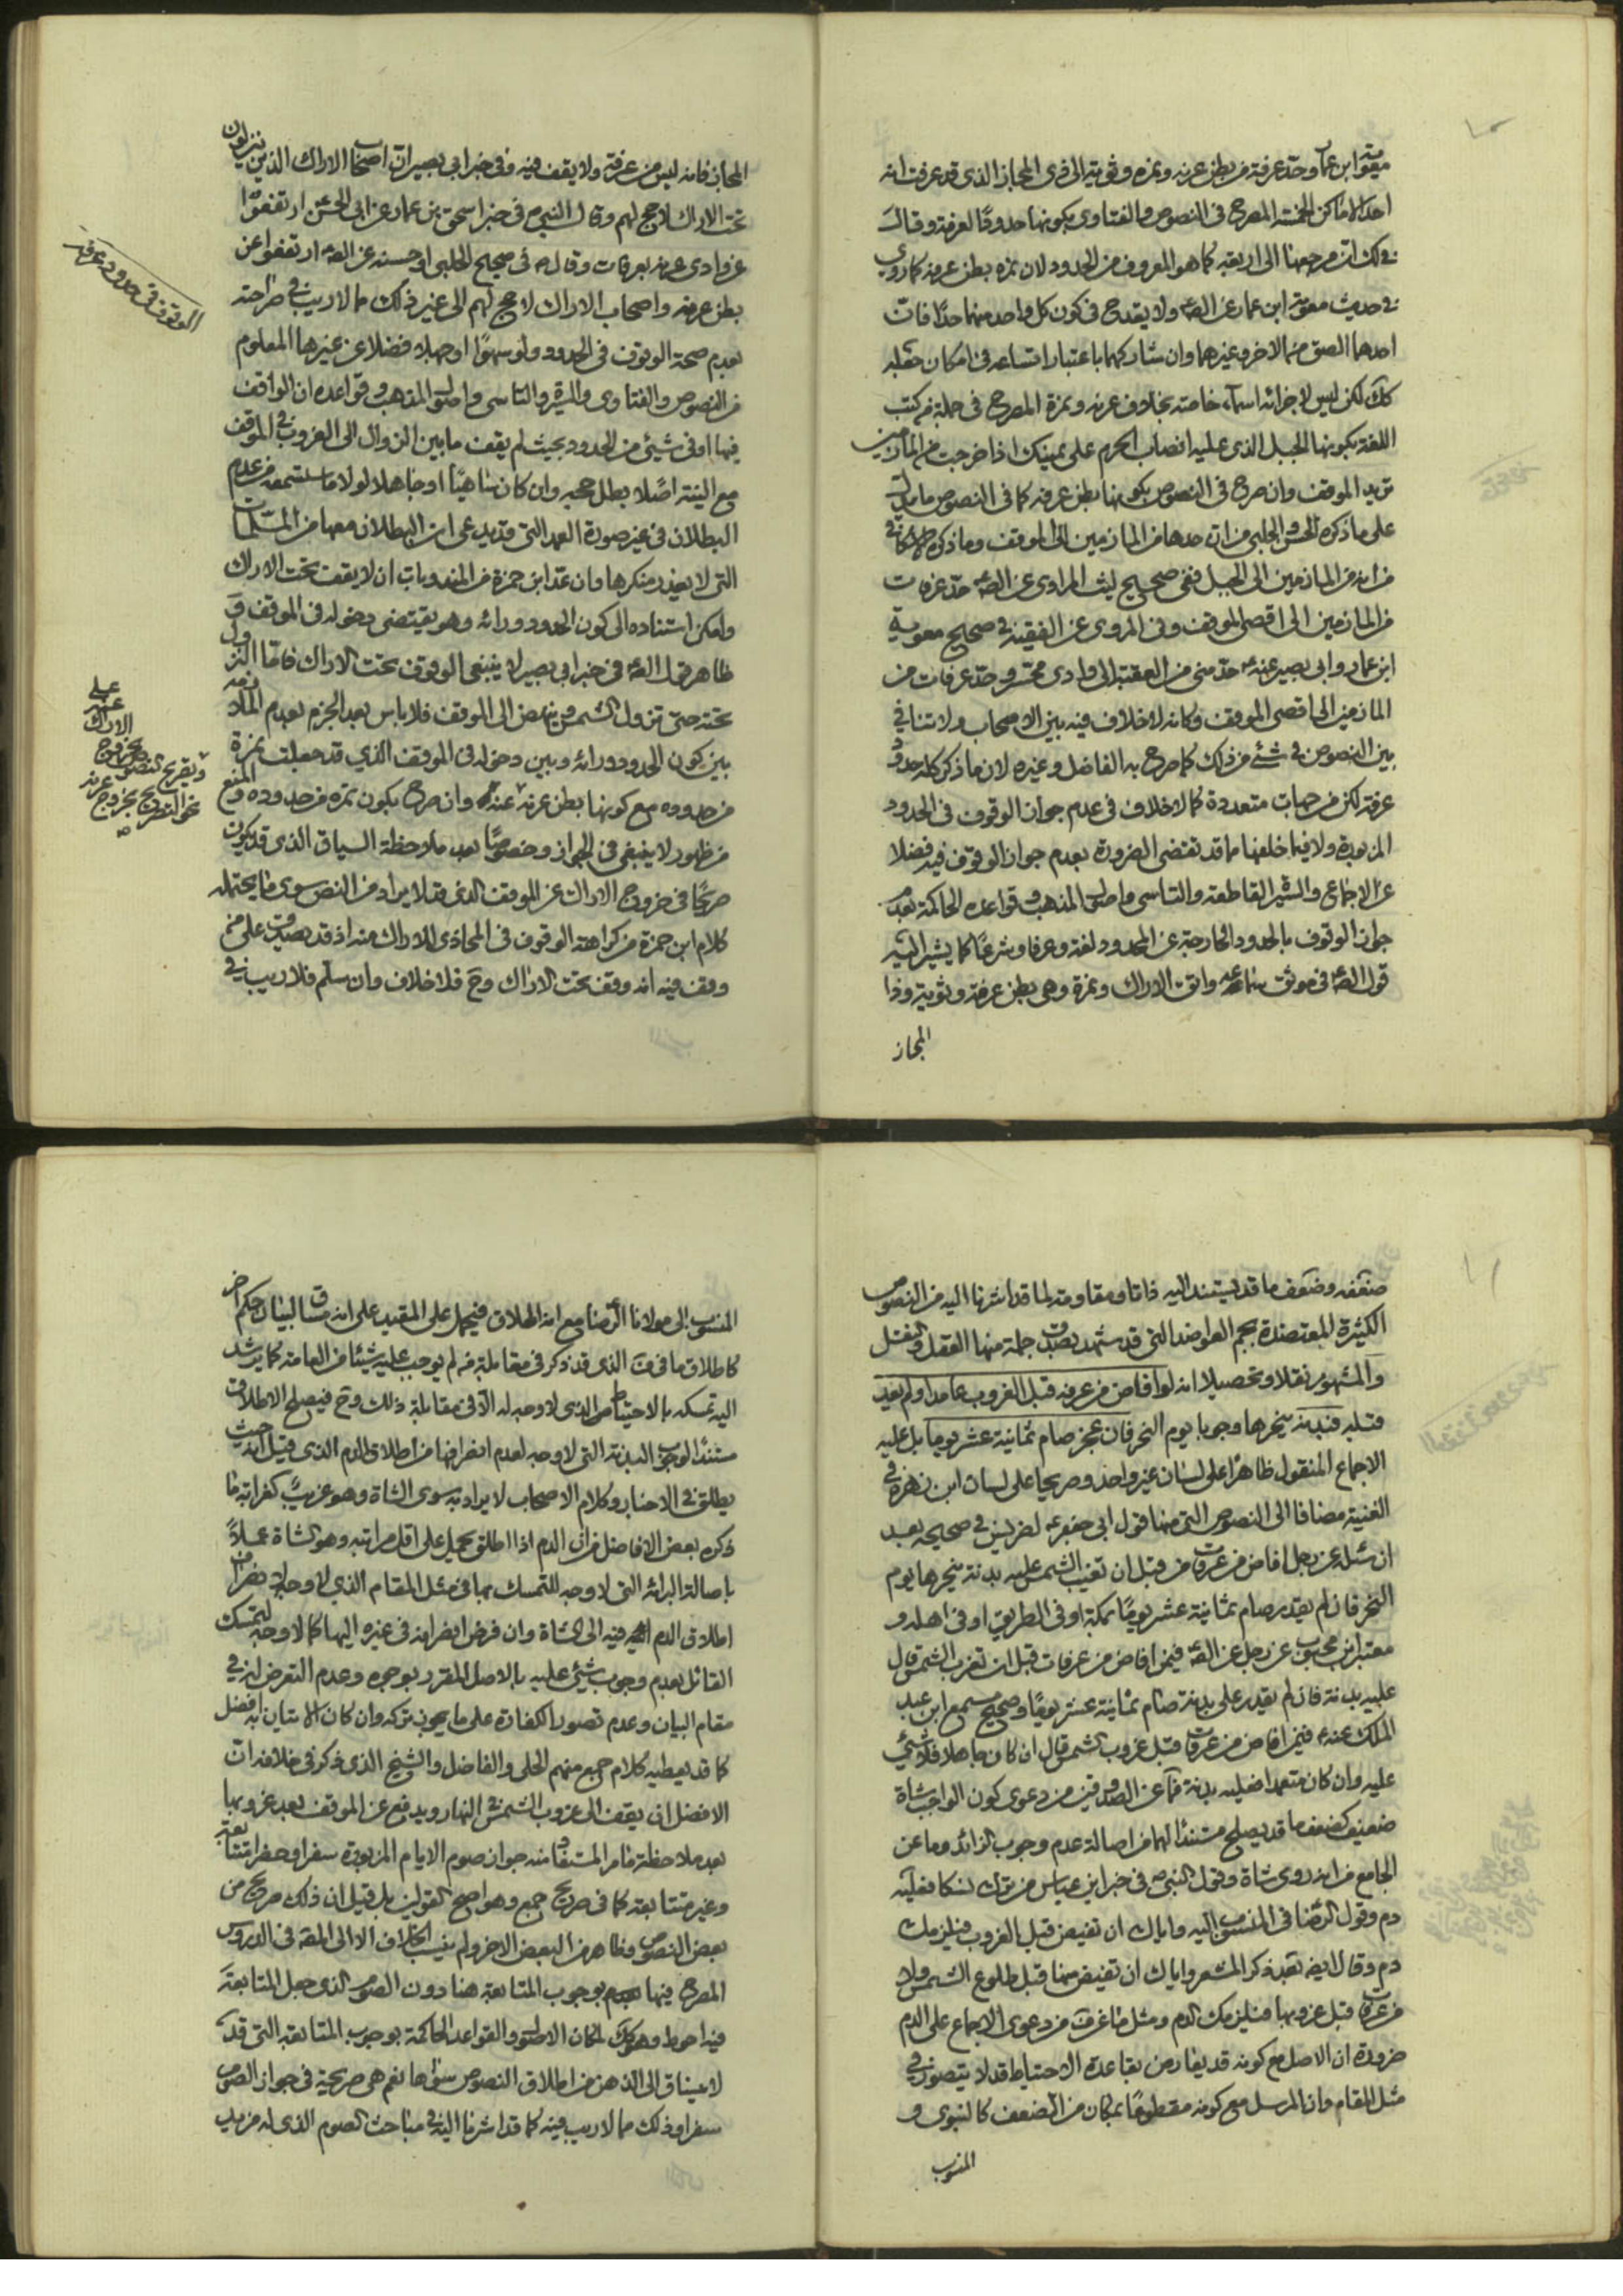 معوية ابن عمار وحد عرفة من بطن عرنه ونمره وثوية الى ذى المجاز الذى قد عرفت انه
احد الاماكن الخمسة المصرح فى النصوص والفتاوى بكونها حدودا لعرفة وقال
فى لك ان مرجعها الى اربعة كما هو المعروف من الحدود لان نمره بطن عرنه كما روى
فى حديث معوية ابن عمار عن الصه ولا يقدح فى كون كل واحد منهما حدا فان
احدهما الصق من الاخر وغيرهما وان شاركهما باعتبار اتساعه فى امكان جعله
كك لكن ليس لاجزائه اسماء خاصة بخلاف عرنه ونمرة المصرح فى جملة من كتب
اللغة بكونها الجبل الذى عليه انصاب الحرم على يمينك اذا خرجت من المازمين
تريد الموقف وان صرح فى النصوص بكونها بطن عرنه كما فى النصوص ما يدل
على ما ذكره الحسن والحلبى من ان حدها من المازمين الى الموقف وما ذكره الاسكافى
من انه من المازمين الى الجبل ففى صحيح ليث المرادى عن الصه حد عرفات
من المازمين الى اقصى الموقف وفى المروى عن الفقيه فى صحيح معوية
ابن عمار وابى بصير عنه ع حد منى من العقبة الى وادى محسر وحد عرفات من
المازمين الى اقصى الموقف وكانه لا خلاف فيه بين الاصحاب ولا تنافى
بين النصوص فى شئ من ذلك كما صرح به الفاضل وغيره لان ما ذكر كله حدود
عرفة لكن من جهات متعددة كما لا خلاف فى عدم جواز الوقوف فى الحدود
المزبورة ولا فيما خلفها مما قد تقتضى الضرورة بعدم جواز الوقوف فيه فضلا
عن الاجماع والسيرة القاطعة والتاسى واصول المذهب وقواعده الحاكمة بعدم
جواز الوقوف بالحدود الخارجة عن المحدود لغة وعرفا وشرعا كما يشير اليه
قول الصه فى موثق سماعه واتق الاراك ونمرة وهى بطن عرنة وثوية وذا
المجاز
المجاز فانه ليس من عرفة ولا يقف فيه وفى خبر ابى بصير ان اصحاب الاراك الذين ينزلون
تحت الاراك لا حج لهم وقال النبى ص فى خبر اسحق بن عمار عن ابى الحسن ع ارتفعوا
عن وادى عرنه بعرفات وقال ص فى صحيح الحلبى او حسنه عن الصه ارتفعوا عن
بطن عرنه واصحاب الاراك لا حج لهم الى غير ذلك مما لا ريب فى صراحته
بعدم صحة الوقوف فى الحدود ولو سهوا او جهلا فضلا عن غيرها المعلوم
من النصوص والفتاوى والسيرة والتاسى واصول المذهب وقواعده ان الواقف
فيها او فى شيئى من الحدود بحيث لم يقف ما بين الزوال الى الغروب فى الموقف
مع النية اصلا بطل حجه وان كان ساهيا او جاهلا لولا ما ستسمعه من عدم
البطلان فى غير صورة العمد التى قد يدعى ان البطلان معها من المسلمات
التى لا يعذر منكرها وان عد ابن حمزة من المندوبات ان لا يقف تحت الاراك
وامكن استناده الى كون الحدود ورائه وهو يقتضى دخوله فى الموقف و
ظاهر قول الصه فى خبر ابى بصير لا ينبغى الوقوف تحت الاراك فاما النزول
تحته حتى تزول الشمس وينهض الى الموقف فلا باس بعد الجزم بعدم الملازمة
بين كون الحدود ورائه وبين دخوله فى الموقف الذي قد جعلت نمرة
من حدوده مع كونها بطن عرنه عنده وان صرح بكون نمره من حدوده ومنع
من ظهور لا ينبغى فى الجواز وخصوصا بعد ملاحظة السياق الذى قد يكون
صريحا فى خروج الاراك عن الموقف الذى قد لا يراد من النص سوى ما يحتمله
كلام ابن حمزة من كراهة الوقوف فى المحاذى للاراك منه اذ قد يصدق على من
وقف فيه انه وقف تحت الاراك وح فلا خلاف وان سلم فلا ريب فى
الوقوف فى حدود عرفه
ضعفه وضعف ما قد يستند اليه ذاتا ومقاومة لما قد اشرنا اليه من النصوص
الكثيرة المعتضدة بجم العواضد التى قد شهد بصدق جملة منها العقل والنقل
والمشهور نقلا وتحصيلا انه لو افاض من عرفه قبل الغروب عامدا ولم يعد
فعليه بدنة ينحرها وجوبا يوم النحر فان عجز صام ثمانية عشر يوما بل عليه
الاجماع المنقول ظاهرا على لسان غير واحد وصريحا على لسان ابن زهرة فى
الغنية مضافا الى النصوص التى منها قول ابى جعفر ع لضريس فى صحيحه بعد
ان سئله عن رجل افاض من عرفات من قبل ان تغيب الشمس عليه بدنة ينحرها يوم
النحر فان لم يقدر صام ثمانية عشر يوما بمكة او فى الطريق او فى اهله و
معتبر ابن محبوب عن رجل عن الصه فيمن افاض من عرفات قبل ان تغرب الشمس قال
عليه بدنة فان لم يقدر على بدنة صام ثمانية عشر يوما وصحيح مسمع ابن عبد
الملك عنه ع فيمن افاض من عرفات قبل غروب الشمس قال ان كان جاهلا فلا شيئى
عليه وان كان متعمدا فعليه بدنة فما عن الصدوقين من دعوى كون الواجب شاة
ضعيف كضعف ما قد يصلح مستندا لهما من اصالة عدم وجوب الزائد وما عن
الجامع من انه روى شاة وقول النبى ص فى خبر ابن عباس من ترك نسكا فعليه
دم وقول الرضا فى المنسوب اليه واياك ان تفيض قبل الغروب فيلزمك
دم وقال ايضه بعد ذكر المشعر واياك ان تفيض منها قبل طلوع الشمس ولا
من عرفات قبل غروبها فيلزمك الدم ومثل ما عن ف من دعوى الاجماع على الدم
ضرورة ان الاصل مع كونه قد يعارض بقاعدة الاحتياط قد لا يتصور فى
مثل المقام وان المرسل مع كونه مقطوعا بمكان من الضعف كالنبوى و
المنسوب
المنسوب الى مولانا الرضا مع انه اطلاق فيحمل على المقيد على انه مساق لبيان حكم اخر
كاطلاق ما فى ف الذى قد ذكر فى مقابلة من لم يوجب عليه شيئا من العامة كما يرشد
اليه تمسكه بالاحتياط الذى لا وجه له الا فى مقابلة ذلك وح فيصلح الاطلاق
مستندا لوجوب البدنة التى لا وجه لعدم انصرافها من اطلاق الدم الذى قيل انه حيث
يطلق فى الاخبار وكلام الاصحاب لا يراد به سوى الشاة وهو غريب كغرابة ما
ذكره بعض الافاضل من ان الدم اذا اطلق يحمل على اقل مراتبه وهو الشاة عملا
باصالة البرائة التى لا وجه للتمسك بها فى مثل المقام الذي لا وجه لانصراف
اطلاق الدم فيه الى الشاة وان فرض انصرافه فى غيره اليها كما لا وجه لتمسك
القائل بعدم وجوب شيئى عليه بالاصل المقرر بوجوه وعدم التعرض له فى
مقام البيان وعدم تصور الكفارة على ما يجوز تركه وان كان الاتيان به افضل
كما قد يعطيه كلام جمع منهم الحلى والفاضل والشيخ الذى ذكر فى خلافه ان
الافضل ان يقف الى غروب الشمس فى النهار ويدفع عن الموقف بعد غروبها
بعد ملاحظة ما مر المستفاد منه جواز صوم الايام المزبورة سفرا وحضرا متتابعة
وغير متتابعة كما فى صريح جمع وهو اصح القولين بل قيل ان ذلك صريح من
بعض النصوص وظاهر من البعض الاخر ولم ينسب الخلاف الا الى المقه فى الدروس
المصرح فيها بوجوب المتابعة هنا دون الصوم الذى جعل المتابعة
فيه احوط وهو كك لمكان الاصول والقواعد الحاكمة بوجوب المتابعة التى قد
لا ينساق الى الذهن من اطلاق النصوص سواها نعم هى صريحة فى جواز الصوم
سفرا وذلك مما لا ريب فيه كما قد اشرنا اليه فى مباحث الصوم الذى له مزيد